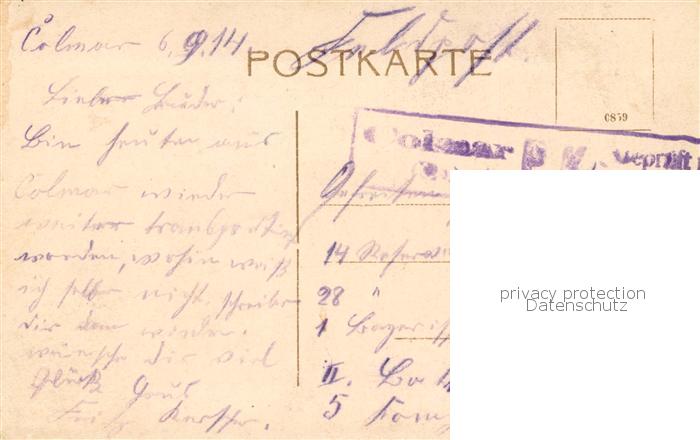 Colmar 6.9.14.
Feldpost.
POSTKARTE
6859
Lieber Bruder!
Bin heute aus
Colmar wieder
weiter transportiert
worden, wohin weiß
ich selber nicht. schreibe
dir dann wieder.
wünsche dir viel
Glück Gruß
Fritz
Colmar
Geprüft
Gefreiten
14 Reserve
28 "
1 Bayerisch
II. Bat
5 Komp
privacy protection
Datenschutz